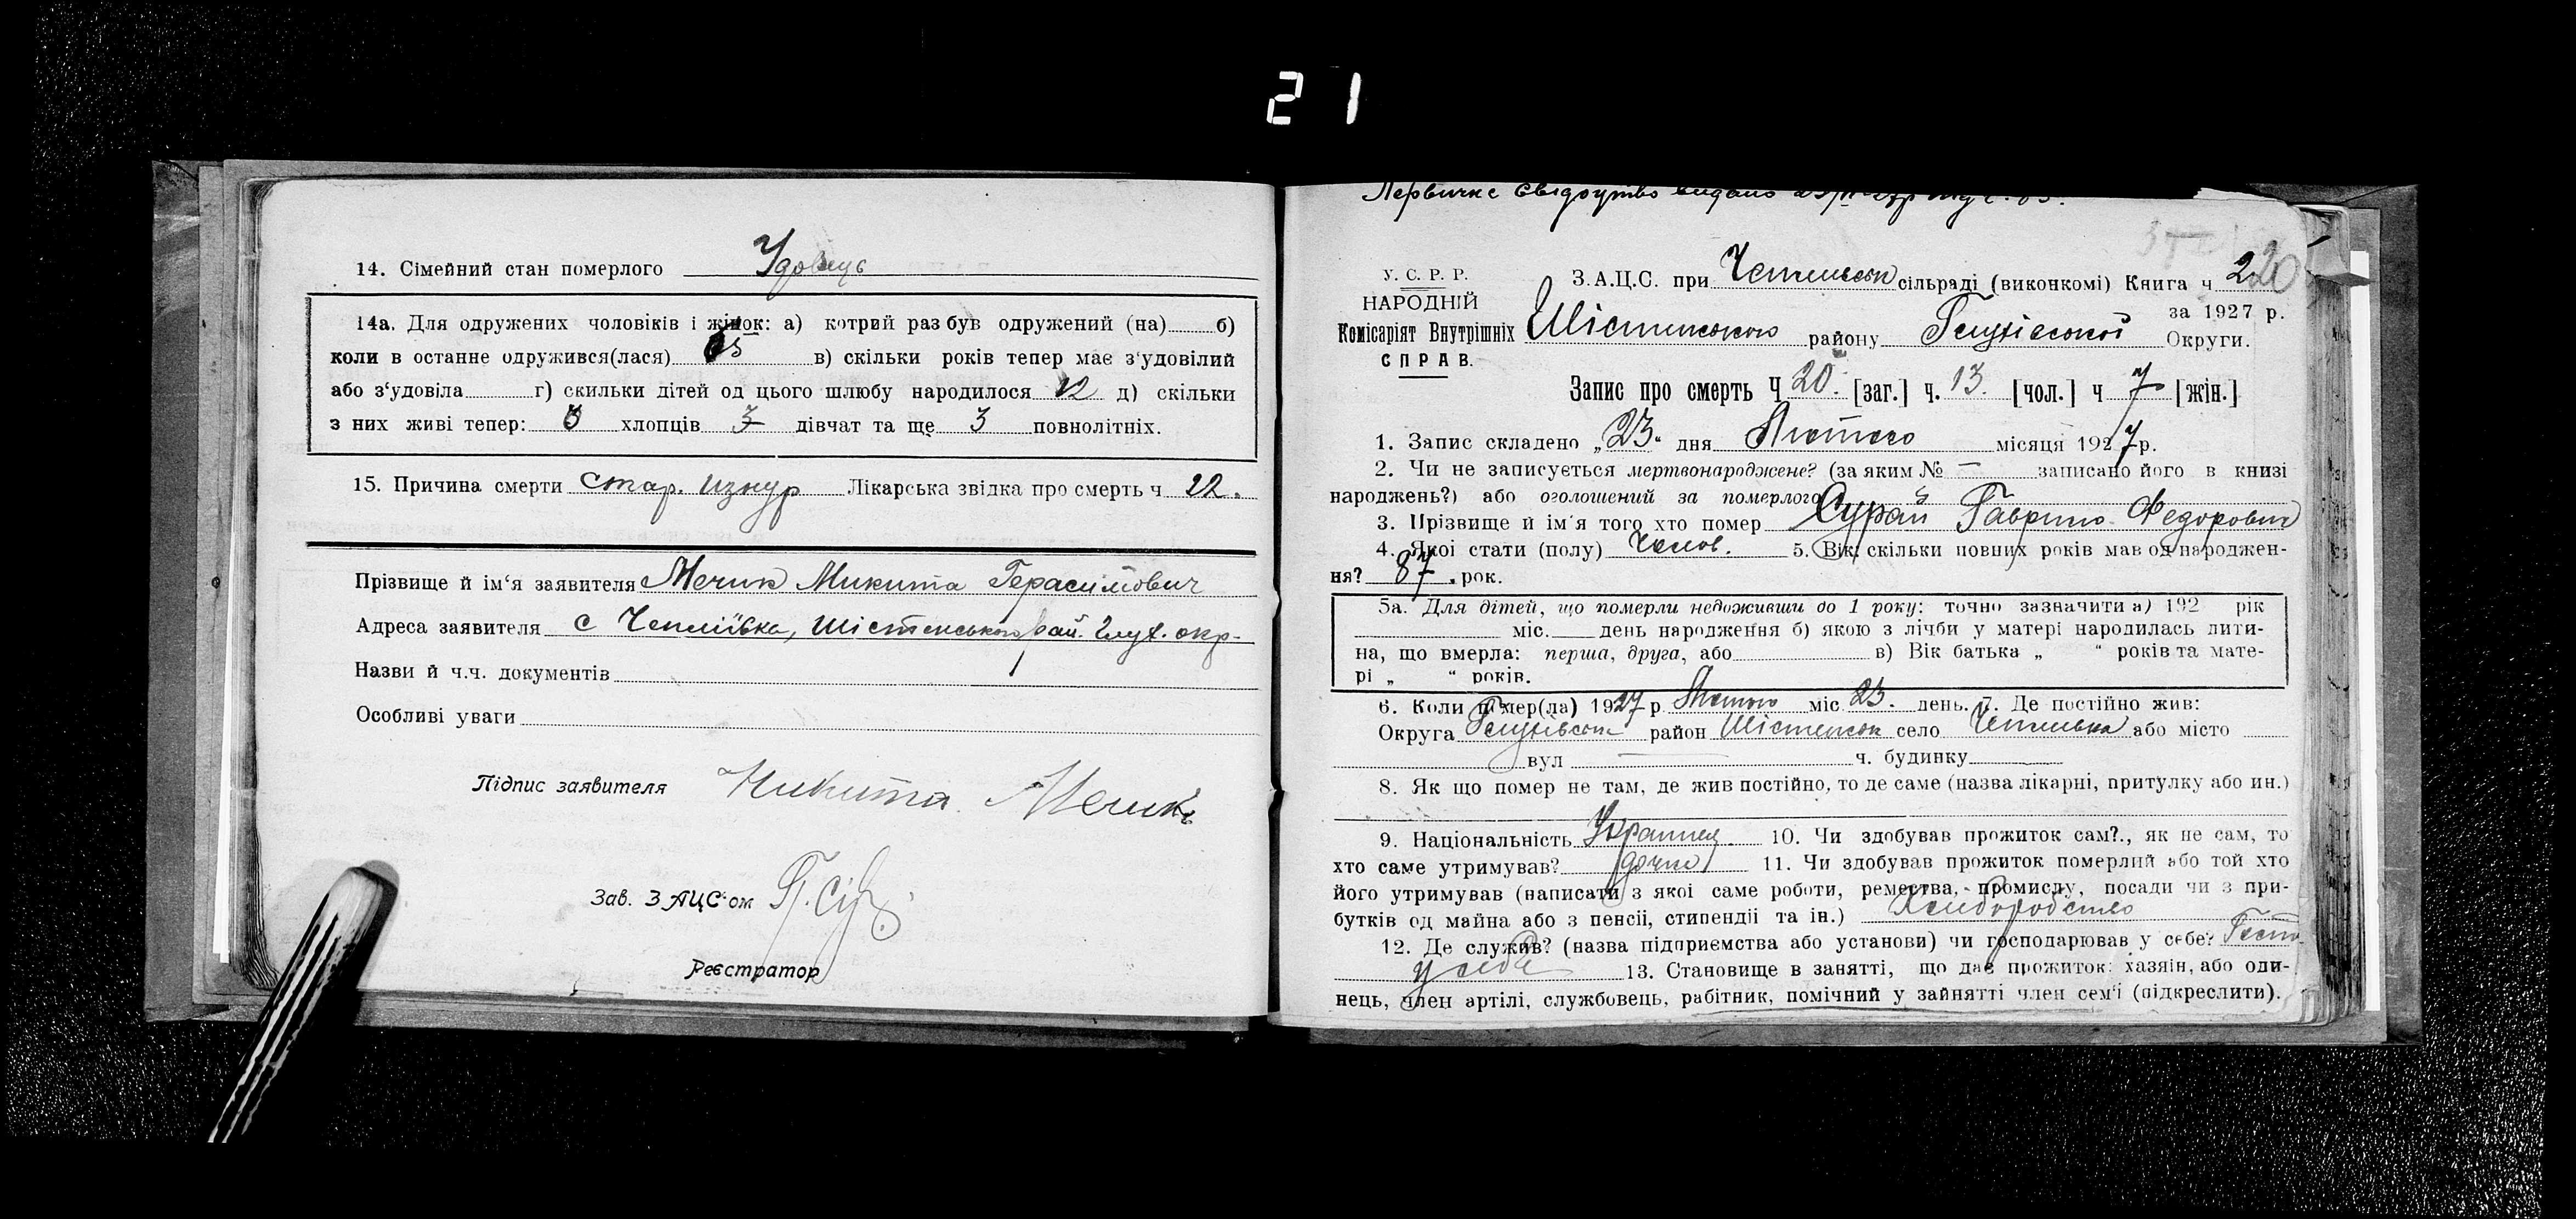 21
14. Сімейний стан померлого Удовець
14а. Для одружених чоловіків і жінок: а) котрий раз був одружений (на) б)
коли в останне одружився(лася) в) скільки років тепер має з'удовілий
або з'удовіла г) скильки дітей од цього шлюбу народилося 12 д) скільки
з них живі тепер: хлопців 3 дівчат та ще 3 повнолітніх.
15. Причина смерти стар. изнур Лікарська звідка про смерть ч 22.
Прізвище й ім'я заявителя Мечик Микита Герасимович
Адреса заявителя с Чепліївка, Шістенського рай. Глух. окр.
Назви й ч.ч. документів
Особливі уваги
Підпис заявителя Никита Мечик
Зав. ЗАЦС-ом
Реєстратор
Первичне свідоцтво видано
У. С. Р. Р.
НАРОДНІЙ
Комісаріят Внутрішніх
СПРАВ.
З.А.Ц.С. при сільраді (виконкомі) Книга ч 2 20
за 1927 р.
району Глухівської Округи.
Запис про смерть Ч 20. [заг.] ч. 13. [чол.] ч 7 [жін.]
1. Запис складено „23" дня Лютого місяця 1927 р.
2. Чи не записується мертвонароджене? (за яким № — записано його в книзі
народжень?) або оголошений за померлого
3. Прізвище й ім'я того хто помер Сурай Гаврило Федорович
4. Якої стати (полу) Чолов. 5. Вік: скільки повних років мав од народжен-
ня? 87 рок.
5а. Для дітей, що померли недоживши до 1 року: точно зазначити а) 192 рік
міс. день народження б) якою з лічби у матері народилась дити-
на, що вмерла: перша, друга, або в) Вік батька „ " років та мате-
рі „ " років.
6. Коли помер(ла) 1927 р Лютого міс 23. день. 7. Де постійно жив:
Округа Глухівськ район село або місто
вул ч. будинку
8. Як що помер не там, де жив постійно, то де саме (назва лікарні, притулку або ин.)
9. Національність Украинец 10. Чи здобував прожиток сам?., як не сам, то
хто саме утримував? дочка 11. Чи здобував прожиток померлий або той хто
його утримував (написати з якої саме роботи, ремества, промислу, посади чи з при-
бутків од майна або з пенсії, стипендії та ін.) Хлеборобство
12. Де служив? (назва підприємства або установи) чи господарював у себе? Госпо
у себе 13. Становище в занятті, що дає прожиток: хазяїн, або оди-
нець, член артілі, службовець, рабітник, помічний у зайнятті член сем'ї (підкреслити).